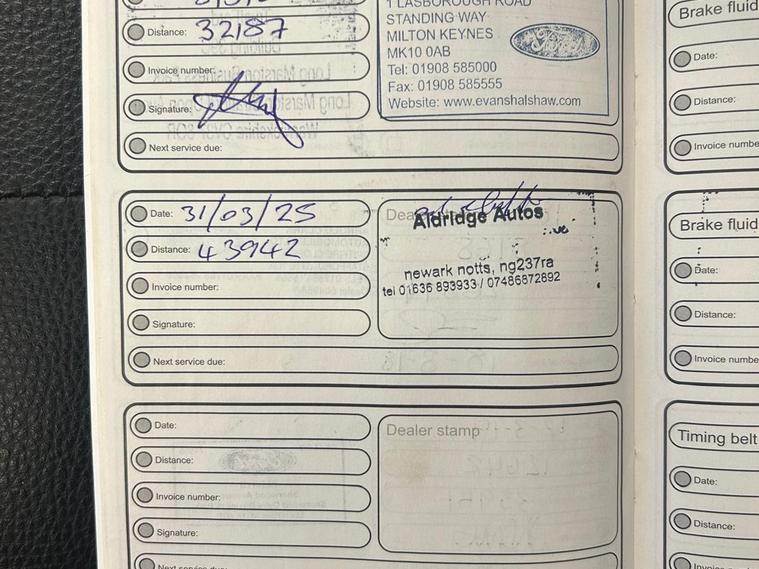 Distance: 32187
Invoice number:
Signature:
Next service due:
1 LASBOROUGH ROAD
STANDING WAY
MILTON KEYNES
MK10 0AB
Tel: 01908 585000
Fax: 01908 585555
Website: www.evanshalshaw.com
Ford
Date: 31/03/25
Distance: 43942
Invoice number:
Signature:
Next service due:
Aldridge Autos
newark notts, ng237ra
tel 01636 893933 / 07486872892
Date:
Distance:
Invoice number:
Signature:
Next service due:
Dealer stamp
Brake fluid
Date:
Distance:
Invoice numbe
Brake fluid
Date:
Distance:
Invoice numbe
Timing belt
Date:
Distance:
Invoice